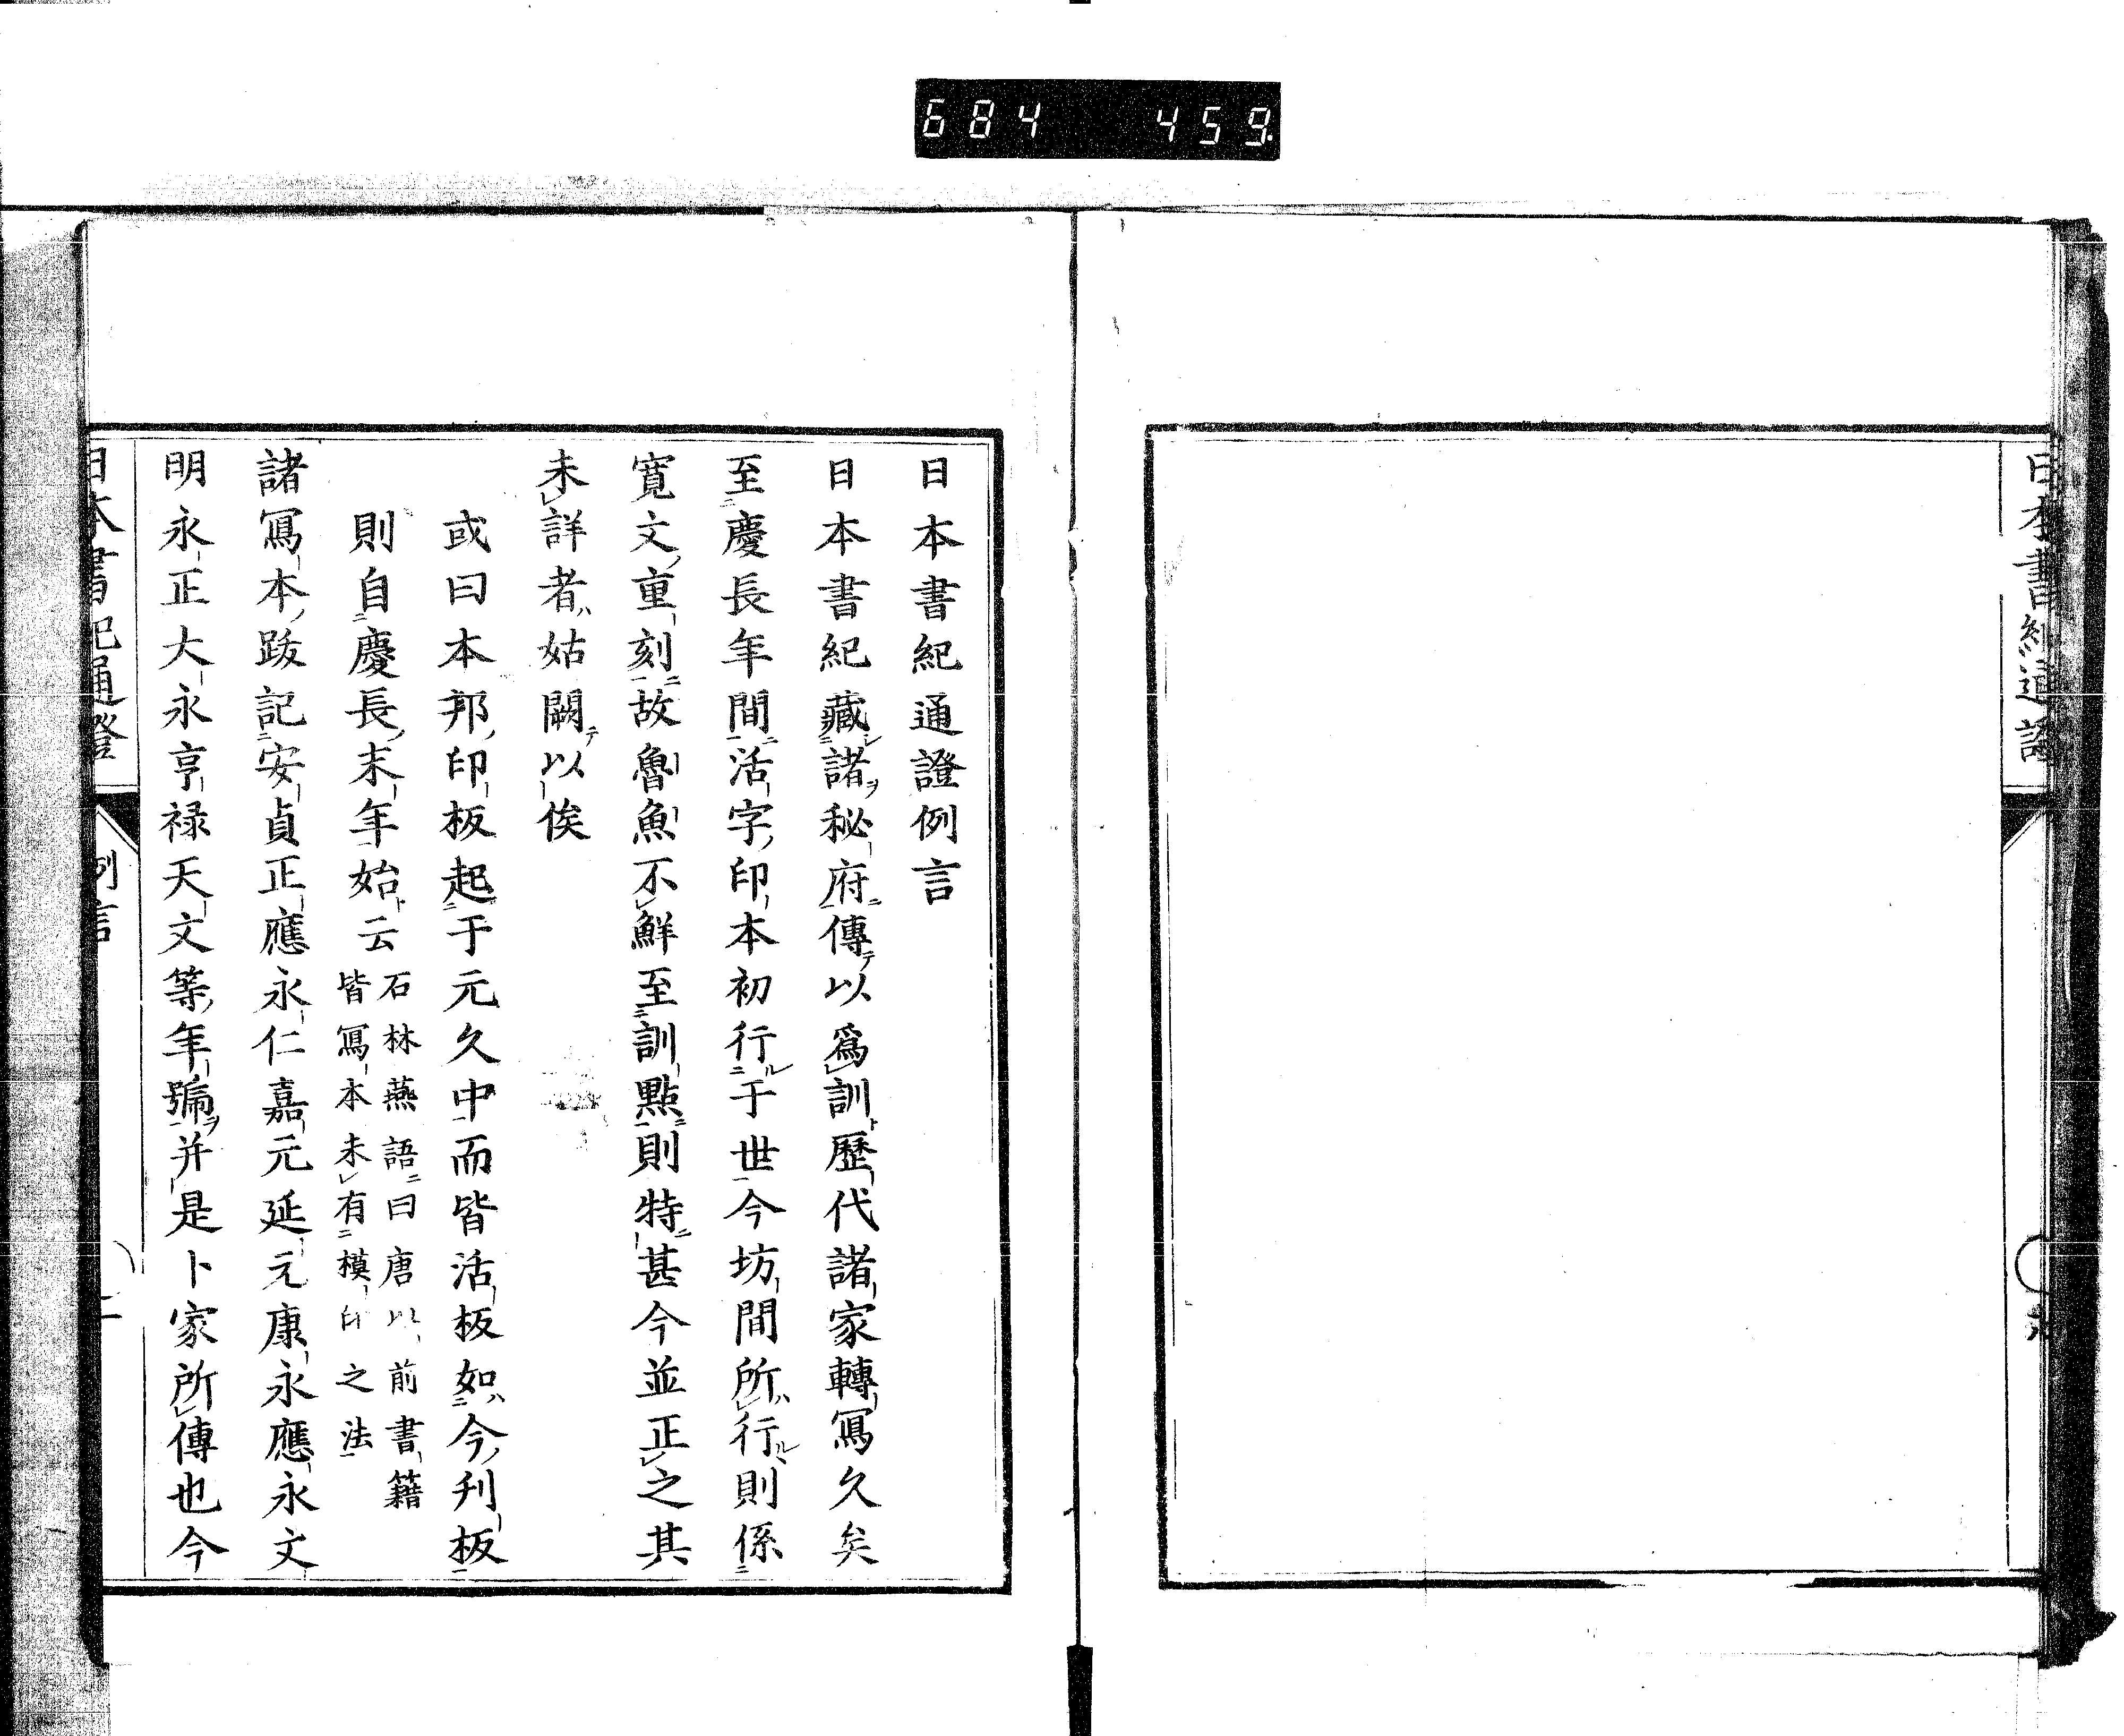 684 459
日本書紀通證
日本書紀通證例言
日本書紀藏諸秘府傳以爲訓歷代諸家轉寫久矣
至慶長年間活字印本初行于世今坊間所行則係
寛文重刻故魯魚不鮮至訓點則特甚今並正之其
未詳者姑闕以俟
或曰本邦印板起于元久中而皆活板如今刋板
則自慶長末年始云
石林燕語曰唐以前書籍
皆寫本未有模印之法
諸寫本跋記安貞正應永仁嘉元延元康永應永文
明永正大永亨禄天文等年號并是卜家所傳也今
日本書紀通證 例言